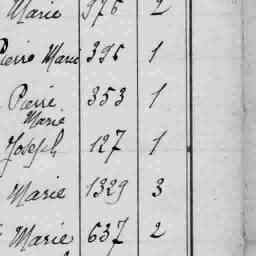 Marie 976 2
Pierre Marie 395 1
Pierre 353 1
Marie
Joseph 127 1
Marie 1329 3
Marie 637 2